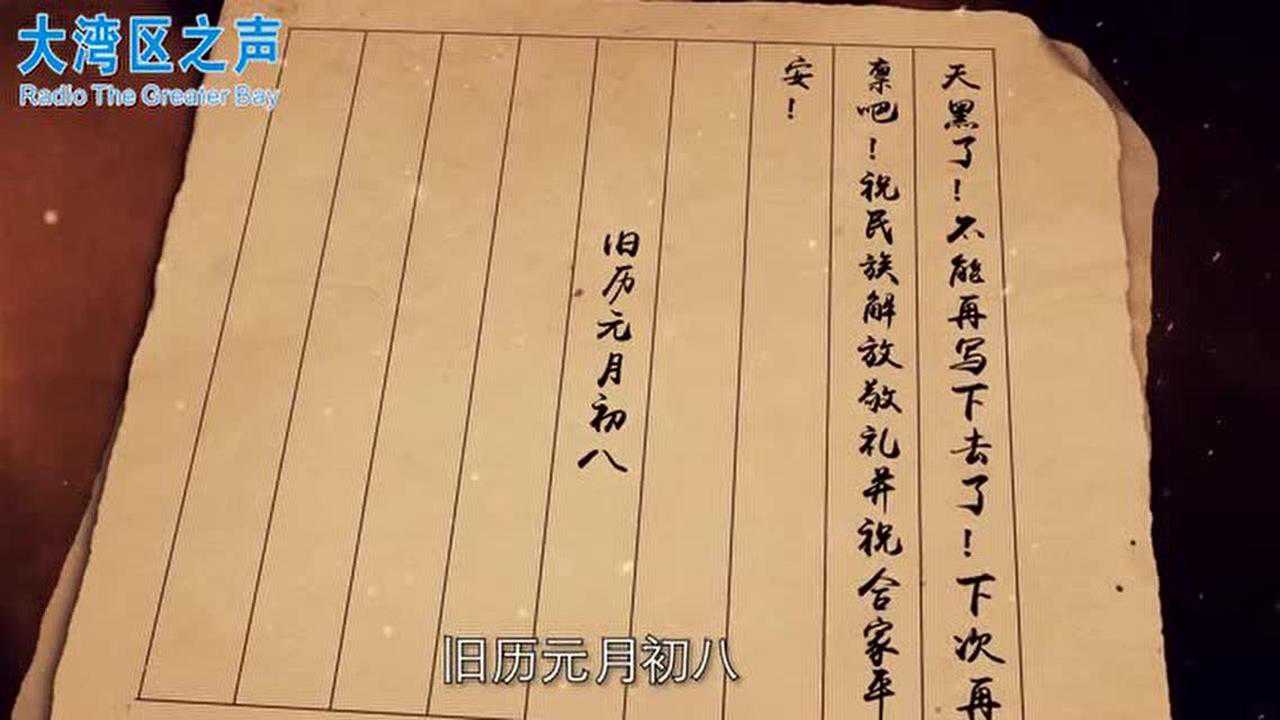 大湾区之声
Radio The Greater Bay
天黑了！不能再写下去了！下次再
禀吧！祝民族解放敬礼并祝合家平
安！
旧历元月初八
旧历元月初八